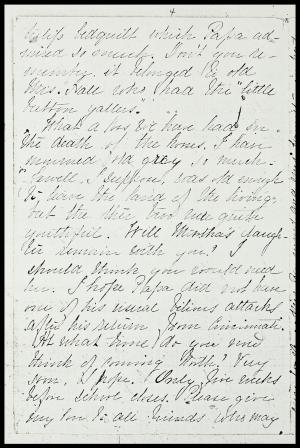 4
bedquilt which Papa ad-
mired so much. Don't you re-
member, it belonged to old
Mrs. Dale who had the "little
button yallers."
What a loss we have had in
the death of the horses. I have
mourned old grey so much.
Jewell, I suppose, was old enough
to leave the land of the living,
but the other two were quite
youthful. Will Martha's daugh-
ter remain with you? I
should think you would need
her. I hope Papa did not have
one of his usual bilious attacks
after his return from Cincinnati.
At what time do you now
think of coming North? Very
soon, I hope. Only five weeks
before school closes. Please give
my love to all friends who may